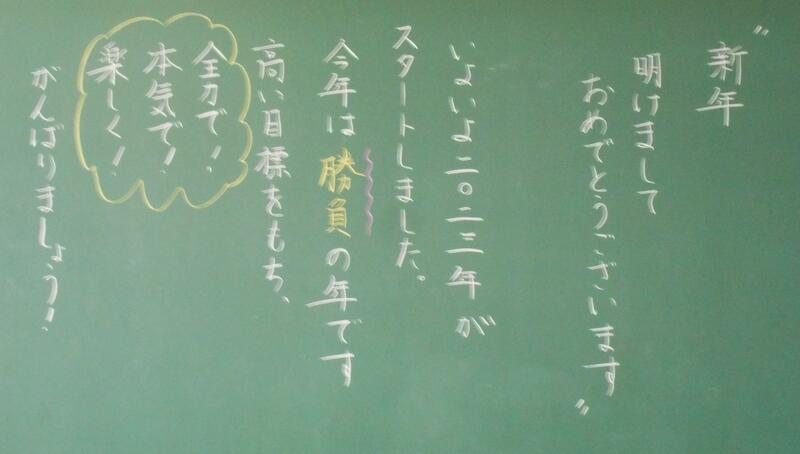 〝新年
明けまして
おめでとうございます〟
いよいよ二〇二三年が
スタートしました。
今年は勝負の年です
高い目標をもち、
全力で！
本気で！
楽しく！
がんばりましょう！